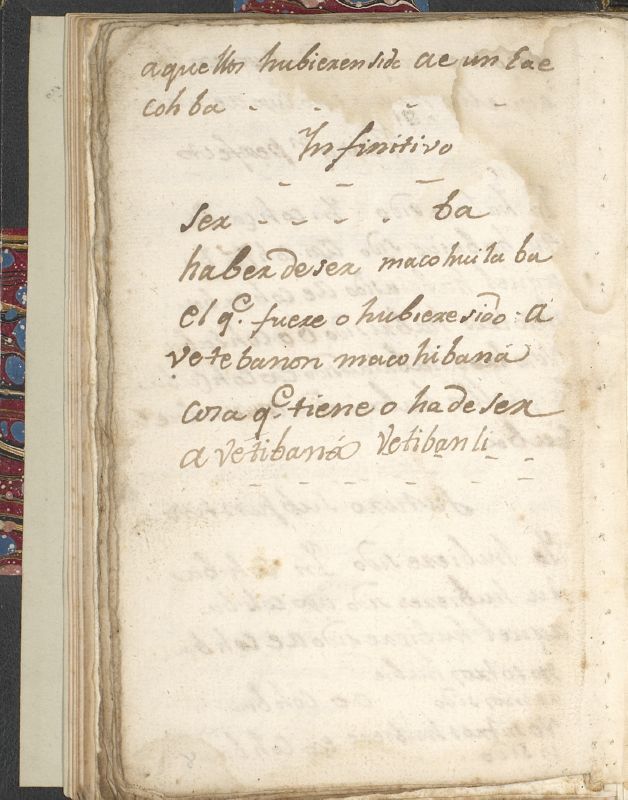 aquellos hubieren sido ae un Eae
cohba - - - -
Infinitivo
- - -
ser - - - - ba
haber de ser macohuila ba
el q.e fuere o hubiere sido. a
vetebanon macohibaná
cosa q.e tiene o ha de ser
a vetibaná vetibanli
- - - - - - - -